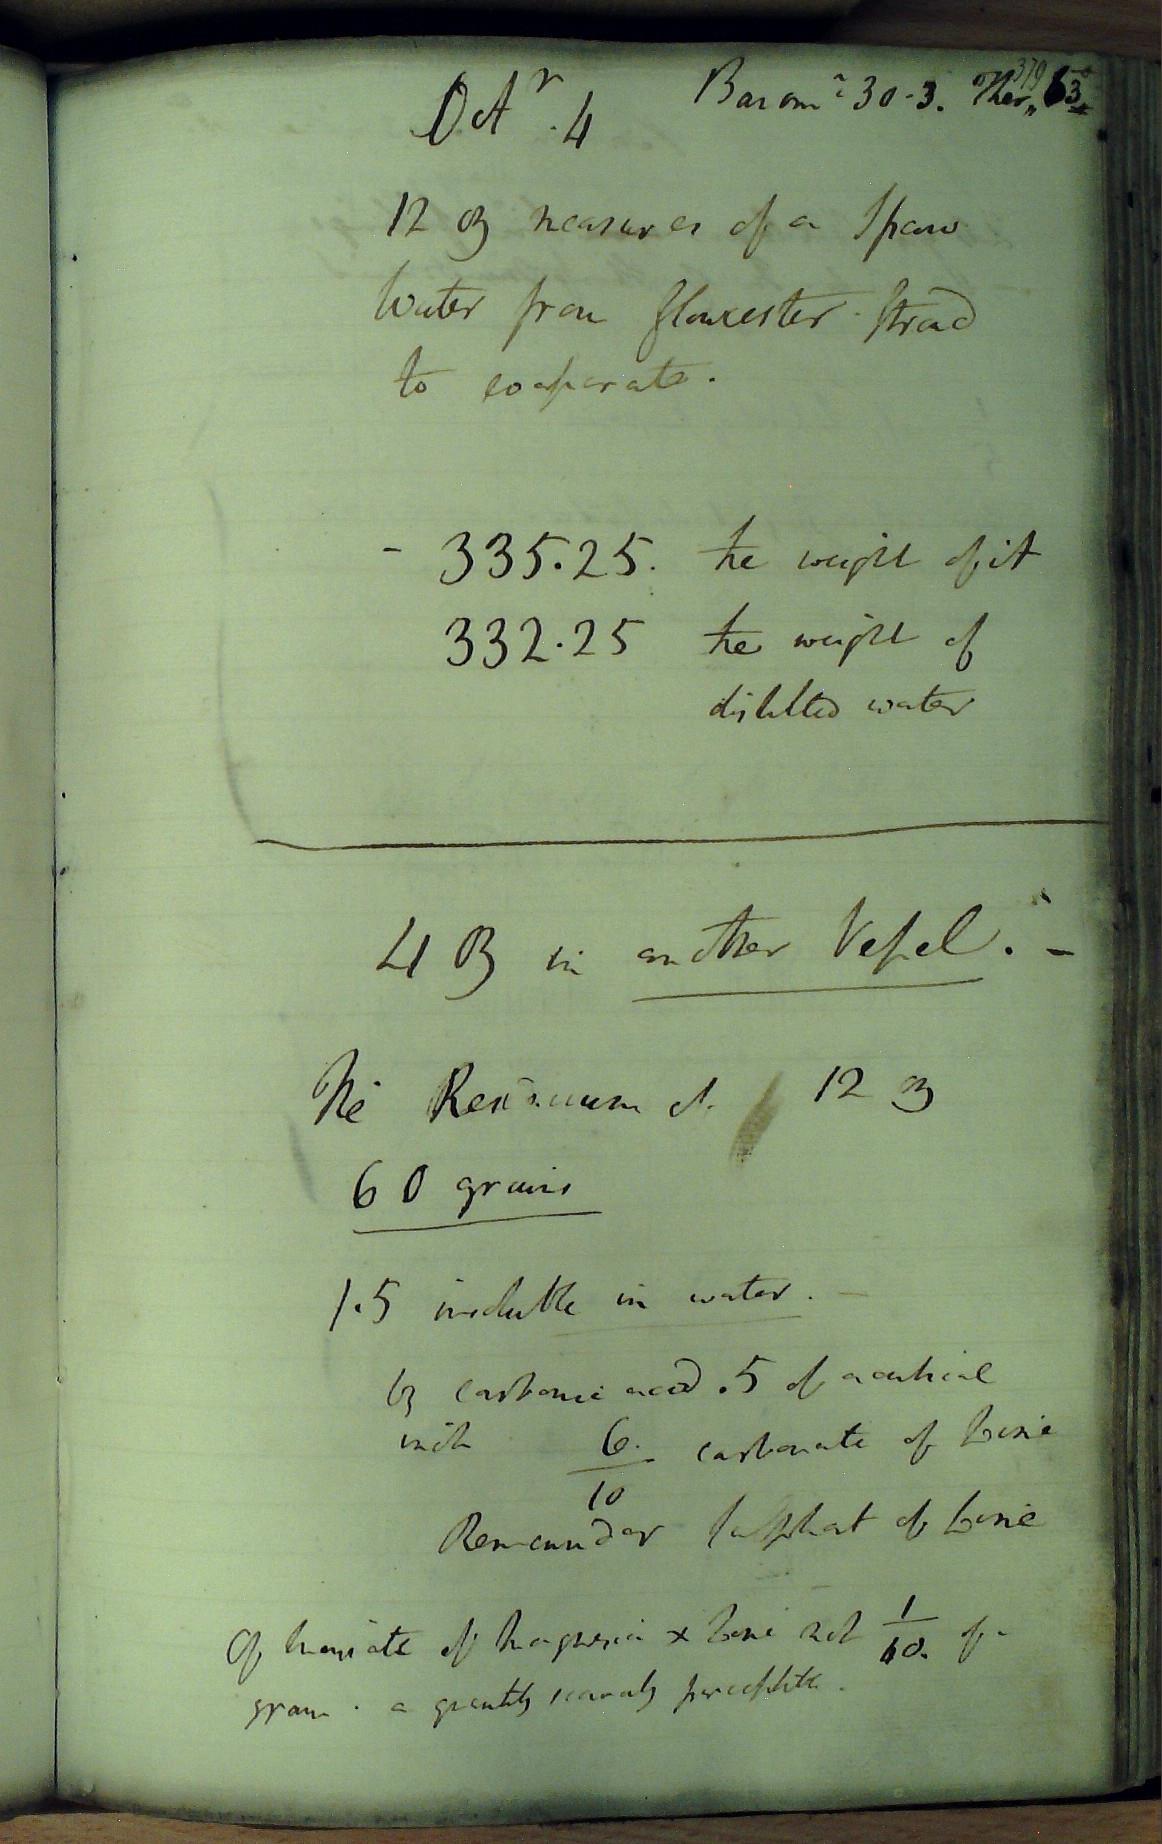 379
Octr. 4 Baromr 30.3. Ther,, 63
12 oz measures of a Spaw
Water from Gloucester Stroud
to evaporate.
- 335.25. the weight of it
332.25 the weight of
distilled water
4 oz in another Vessel. -
The Residuum of 12 oz
60 grains
1.5 insoluble in water. -
by carbonic acid .5 of a cubical
inch 6/10 carbonate of Lime
Remainder Sulphat of Lime
Of Muriate of Magnesia & Lime not 1/10. of a
grain. a quantity scarcely perceptible.